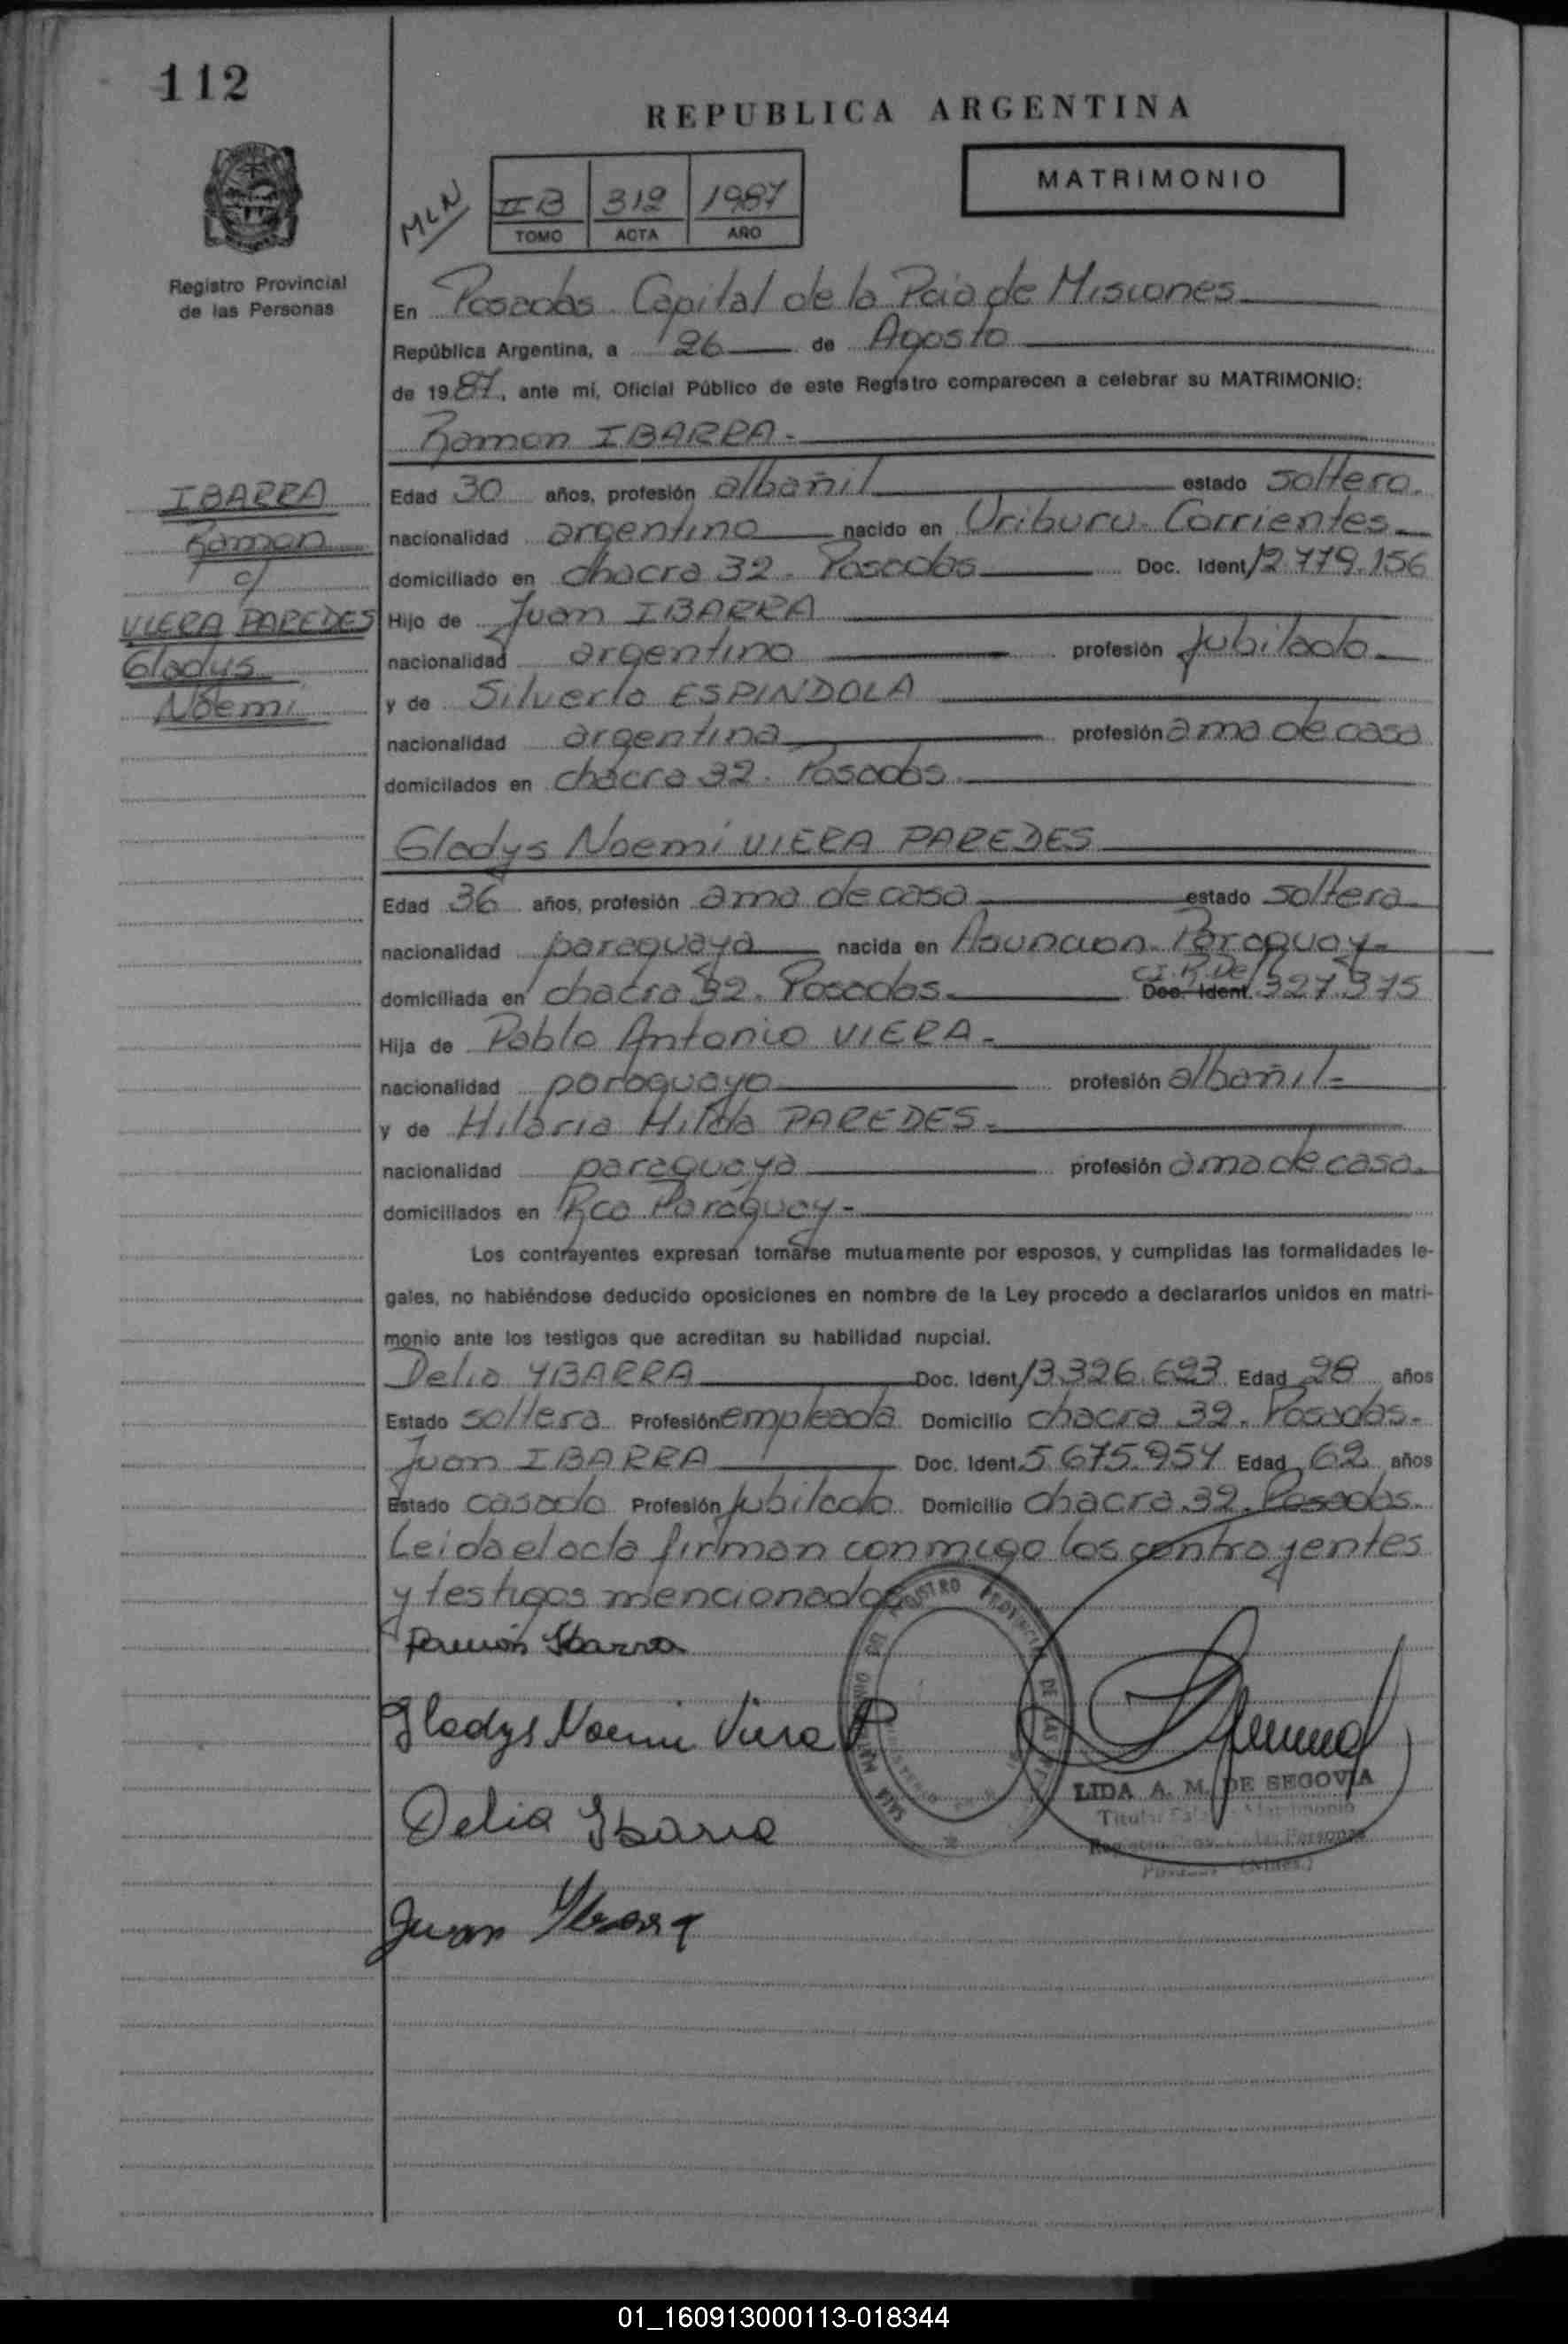 112
REPUBLICA ARGENTINA
MATRIMONIO
MLN
II B 312 1987
TOMO ACTA AÑO
Registro Provincial
de las Personas
En Posadas. Capital de la Pcia de Misiones
República Argentina, a 26 de Agosto
de 1987, ante mí, Oficial Público de este Registro comparecen a celebrar su MATRIMONIO:
Ramon IBARRA.-
IBARRA
Ramon
c/
VIERA PAREDES
Gladys
Noemi
Edad 30 años, profesión albañil estado soltero.
nacionalidad argentino nacido en Uriburu. Corrientes
domiciliado en chacra 32. Posadas Doc. Ident. 12.779.156
Hijo de Juan IBARRA
nacionalidad argentino profesión jubilado
y de Silveria ESPINDOLA
nacionalidad argentina profesión ama de casa
domicilados en chacra 32. Posadas.
Gladys Noemi VIERA PAREDES
Edad 36 años, profesión ama de casa estado soltera
nacionalidad paraguaya nacida en Asuncion. Paraguay
C.I.
domiciliada en chacra 32. Posadas. Doc. Ident. 327.375
Hija de Pablo Antonio VIERA.
nacionalidad paraguayo profesión albañil
y de Hilaria Hilda PAREDES.
nacionalidad paraguaya profesión ama de casa.
domiciliados en Rca Paraguay
Los contrayentes expresan tomarse mutuamente por esposos, y cumplidas las formalidades le-
gales, no habiéndose deducido oposiciones en nombre de la Ley procedo a declararlos unidos en matri-
monio ante los testigos que acreditan su habilidad nupcial.
Delia YBARRA Doc. Ident. 13.326.693 Edad 28 años
Estado soltera Profesión empleada Domicilio chacra 32. Posadas.
Juan IBARRA Doc. Ident. 5.675.954 Edad 62 años
Estado casado Profesión jubilado Domicilio chacra 32. Posadas.
Leida el acta firman conmigo los contrayentes
y testigos mencionados
Ramón Ibarra
Gladys Noemi Viera P
Delia Ybarra
Juan Ybarra
REGISTRO PROVINCIAL DE LAS
LIDA A. M. DE SEGOVIA
01_160913000113-018344